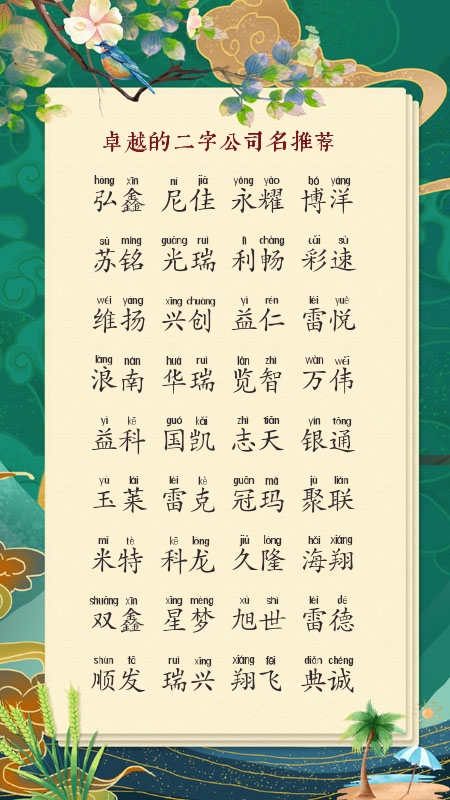 卓越的二字公司名推荐
hóng xīn ní jiā yǒng yào bó yáng
弘鑫 尼佳 永耀 博洋
sū míng guāng ruì lì chàng cǎi sù
苏铭 光瑞 利畅 彩速
wéi yáng xīng chuàng yì rén léi yuè
维扬 兴创 益仁 雷悦
làng nán huá ruì lǎn zhì wàn wěi
浪南 华瑞 览智 万伟
yì kē guó kǎi zhì tiān yín tōng
益科 国凯 志天 银通
yù lái léi kè guān mǎ jù lián
玉莱 雷克 冠玛 聚联
mǐ tè kē lóng jiǔ lóng hǎi xiáng
米特 科龙 久隆 海翔
shuāng xīn xīng mèng xù shì léi dé
双鑫 星梦 旭世 雷德
shùn fā ruì xīng xiáng fēi diǎn chéng
顺发 瑞兴 翔飞 典诚